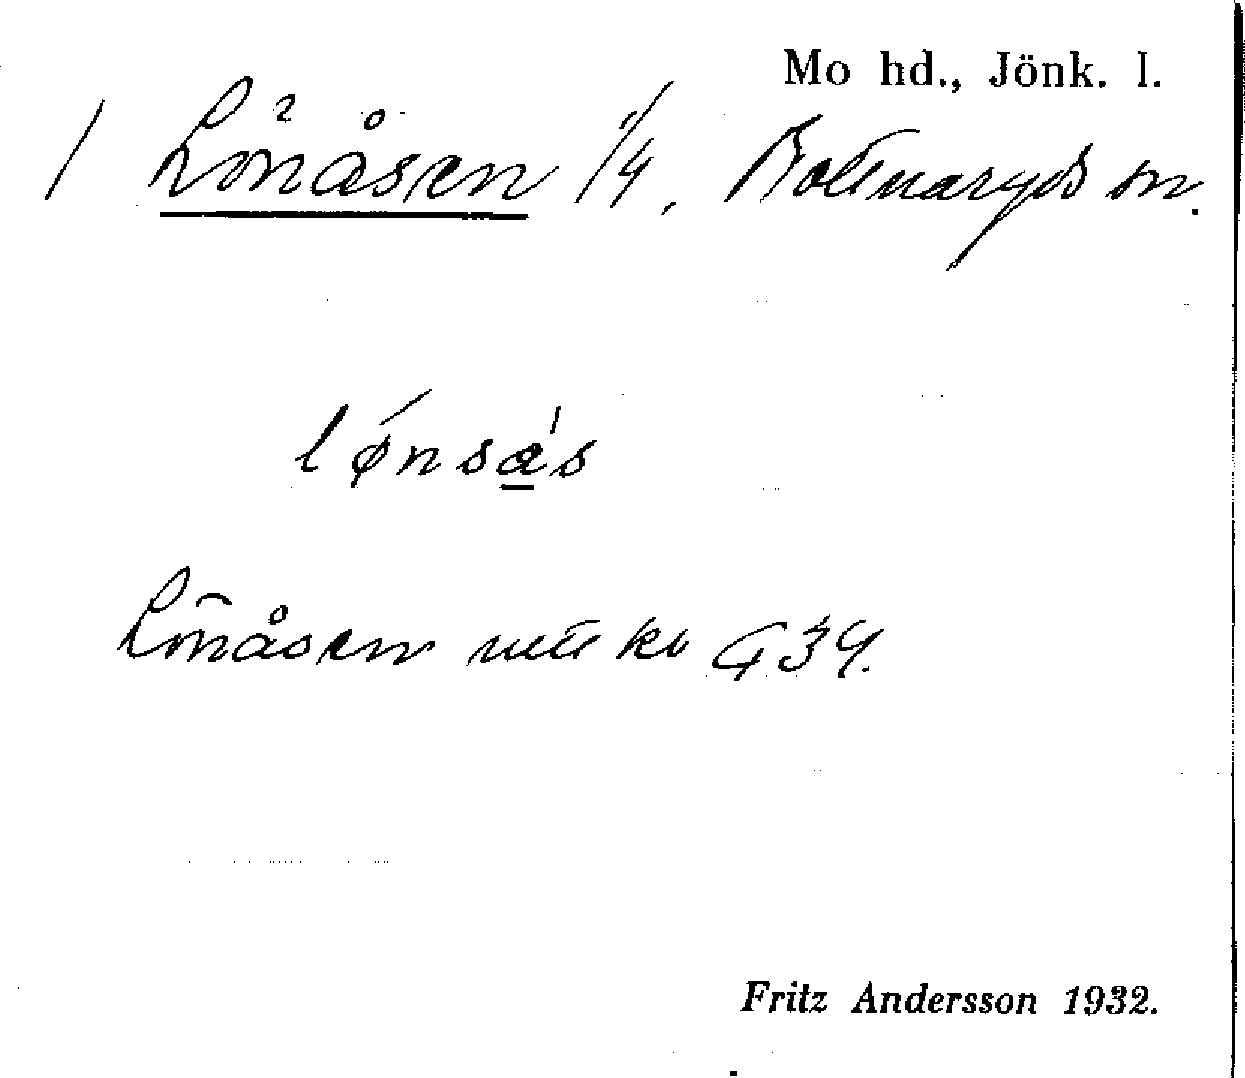 Mo hd., Jönk. l.
/ Lönåsen 1/4, Bottnaryds sn.
lønsás
Lönåsen utt kb G 34.
Fritz Andersson 1932.